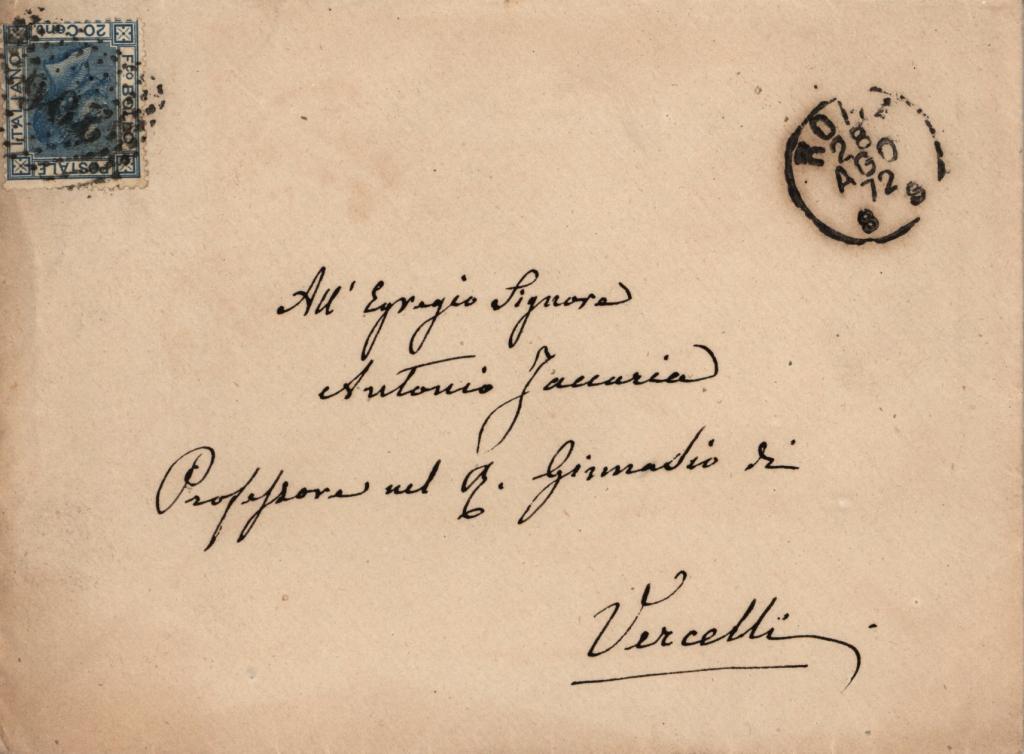 20 Cent
Fco BOLLO
POSTALE
ITALIANO
ROMA
28
AGO
72
8 S
All' Egregio Signore
Antonio Zaccaria
Professore nel R. Ginnasio di
Vercelli